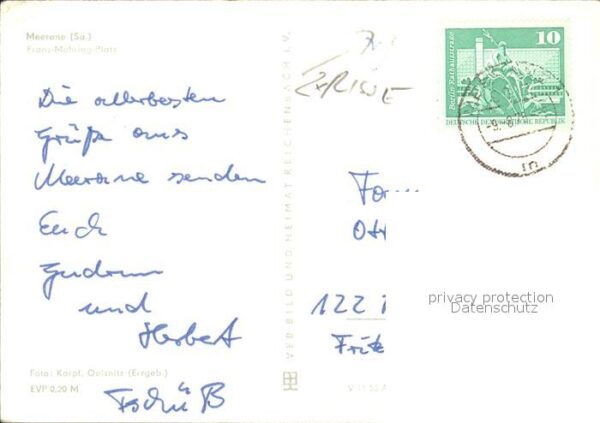 Meerane (Sa.)
Franz-Mehring-Platz
Die allerbesten
Grüße aus
Meerane senden
Euch
Gudrun
und
Herbert
Tschüß
Foto: Karpf, Oelsnitz (Erzgeb.)
EVP 0,20 M
VEB BILD UND HEIMAT REICHENBACH I. V.
10
Berlin, Rathausstraße
DEUTSCHE DEMOKRATISCHE REPUBLIK
122
privacy protection
Datenschutz